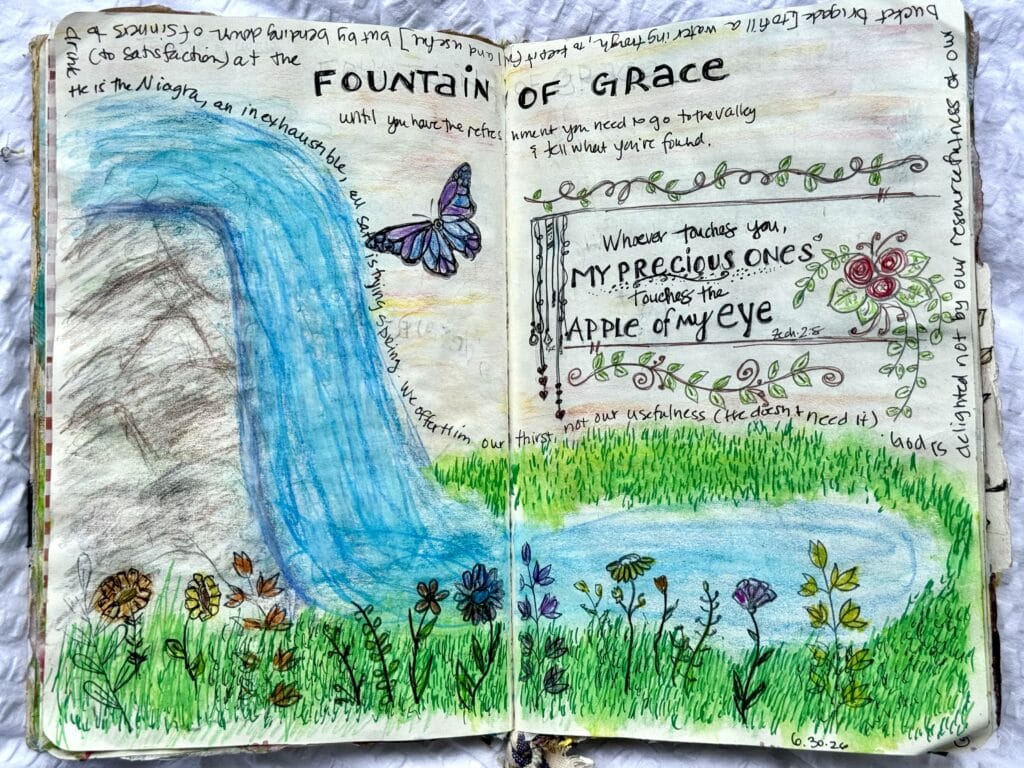 He is the Niagra, an inexhaustible, all satisfying spring We offer Him our thirst, not our usefulness (He doesn't need it)
God is delighted not by our resourcefulness or our
bucket brigade [to fill a watering trough, to keep it full and useful] but by bending down of sinners to
drink (to satisfaction) at the
FOUNTAIN OF GRACE
until you have the refreshment you need to go to the valley
& tell what you're found.
Whoever touches you,
MY PRECIOUS ONES
touches the
APPLE OF MY EYE
Zech. 2:8